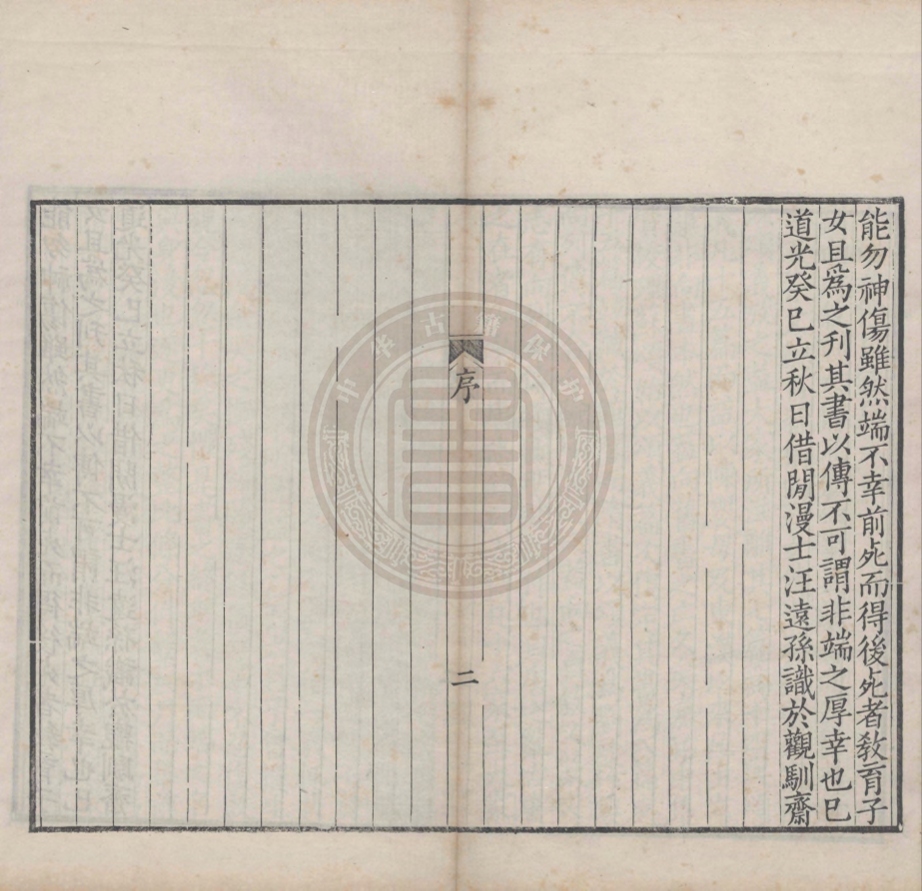 能勿神傷雖然端不幸前𣦸而得後𣦸者敎育子
女且爲之刋其書以傳不可謂非端之厚幸也已
道光癸巳立秋日借閒漫士汪遠孫識於觀馴齋
序
二
中华古籍保护